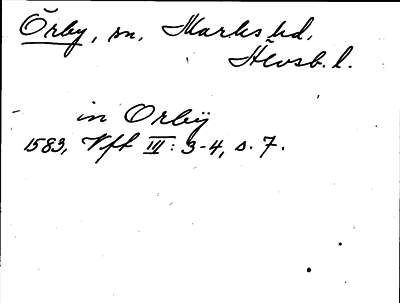 Örby, sn, Marks hd,
Älvsb. l.
in Orbÿ
1583, Vft III: 3-4, s. 7.